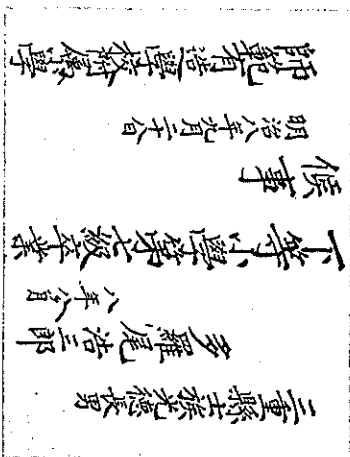 三重縣士族光德長男
多羅尾浩三郎
八年八月
下等小學第七級卒業
候事
明治八年九月二十八日
師範有造學校附屬小學